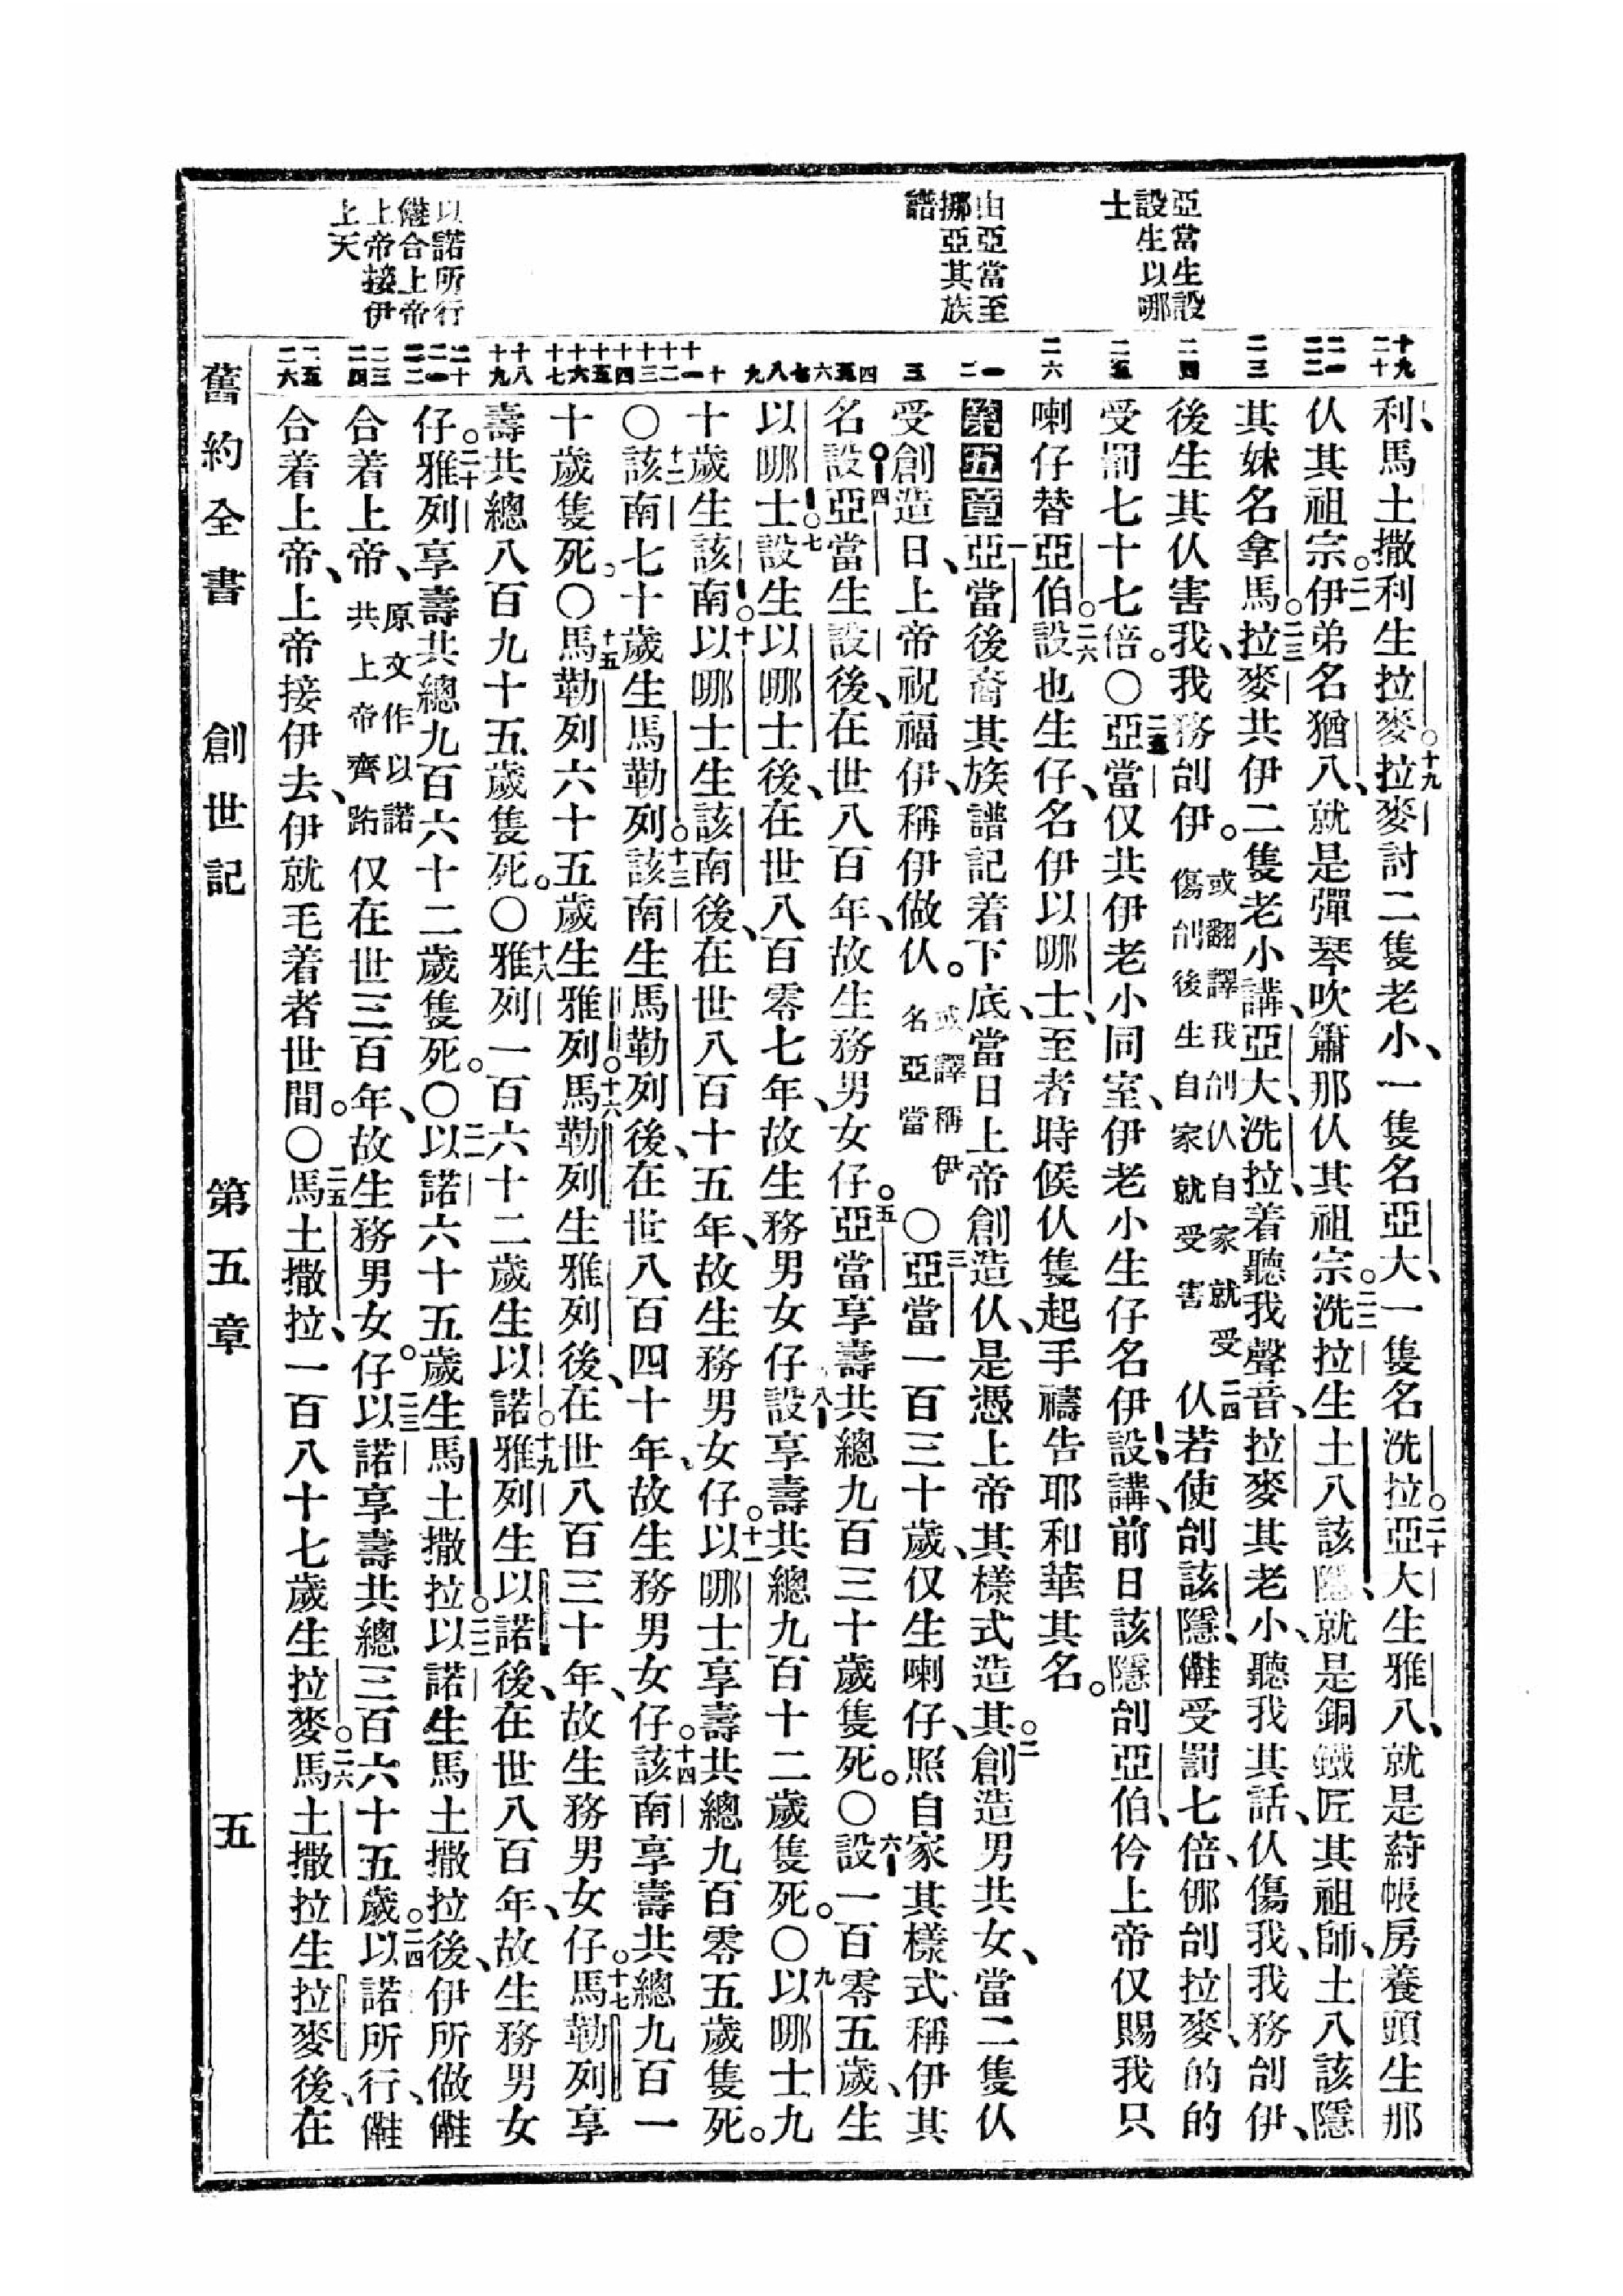 亞當生設
設生以哪
士
由亞當至
挪亞其族
譜
以諾所行
㒰合上帝
上帝接伊
上天
利、馬土撒利生拉麥。十九拉麥討二隻老小、一隻名亞大、一隻名洗拉。二十亞大生雅八、就是蒔帳房養頭生那
仈其祖宗。二一伊弟名猶八、就是彈琴吹簫那仈其祖宗。二二洗拉生土八該隱、就是銅鐵匠其祖師、土八該隱
其妹名拿馬。二三拉麥共伊二隻老小講、亞大洗拉、着聽我聲音、拉麥其老小、聽我其話、仈傷我、我務刣伊、
後生其仈害我、我務刣伊。或翻譯我刣仈自家就受傷刣後生自家就受害二四仈若使刣該隱、㒰受罰七倍、㑚刣拉麥、的的
受罰七十七倍。〇二五亞當仅共伊老小同室、伊老小生仔名伊設、講、前日該隱刣亞伯、仱上帝仅賜我只
喇仔替亞伯。二六設也生仔、名伊以哪士、至者時候仈隻起手禱告耶和華其名。
第五章一亞當後裔其族譜記着下底、當日上帝創造仈、是憑上帝其樣式造其。二創造男共女、當二隻仈
受創造日、上帝祝福伊、稱伊做仈。或譯稱伊名亞當〇三亞當一百三十歲、仅生喇仔、照自家其樣式、稱伊其
名設。四亞當生設後、在世八百年、故生務男女仔。五亞當享壽共總九百三十歲隻死。〇六設一百零五歲、生
以哪士。七設生以哪士後、在世八百零七年、故生務男女仔八設享壽共總九百十二歲隻死。〇九以哪士九
十歲生該南。十以哪士生該南後、在世八百十五年、故生務男女仔。十一以哪士享壽共總九百零五歲隻死。
〇十二該南七十歲生馬勒列。十三該南生馬勒列後、在世八百四十年、故生務男女仔。十四該南享壽共總九百一
十歲隻死。〇十五馬勒列六十五歲生雅列。十六馬勒列生雅列後、在世八百三十年、故生務男女仔。十七馬勒列享
壽共總八百九十五歲隻死。〇十八雅列一百六十二歲生以諾。十九雅列生以諾後、在世八百年、故生務男女
仔。二十雅列享壽共總九百六十二歲隻死。〇二一以諾六十五歲生馬土撒拉。二二以諾生馬土撒拉後、伊所做㒰
合着上帝、原文作以諾共上帝齊跕仅在世三百年、故生務男女仔。二三以諾享壽共總三百六十五歲。二四以諾所行、㒰
合着上帝、上帝接伊去、伊就毛着者世間。〇二五馬土撒拉、一百八十七歲生拉麥。二六馬土撒拉生拉麥後、在
舊約全書 創世記 第五章 五